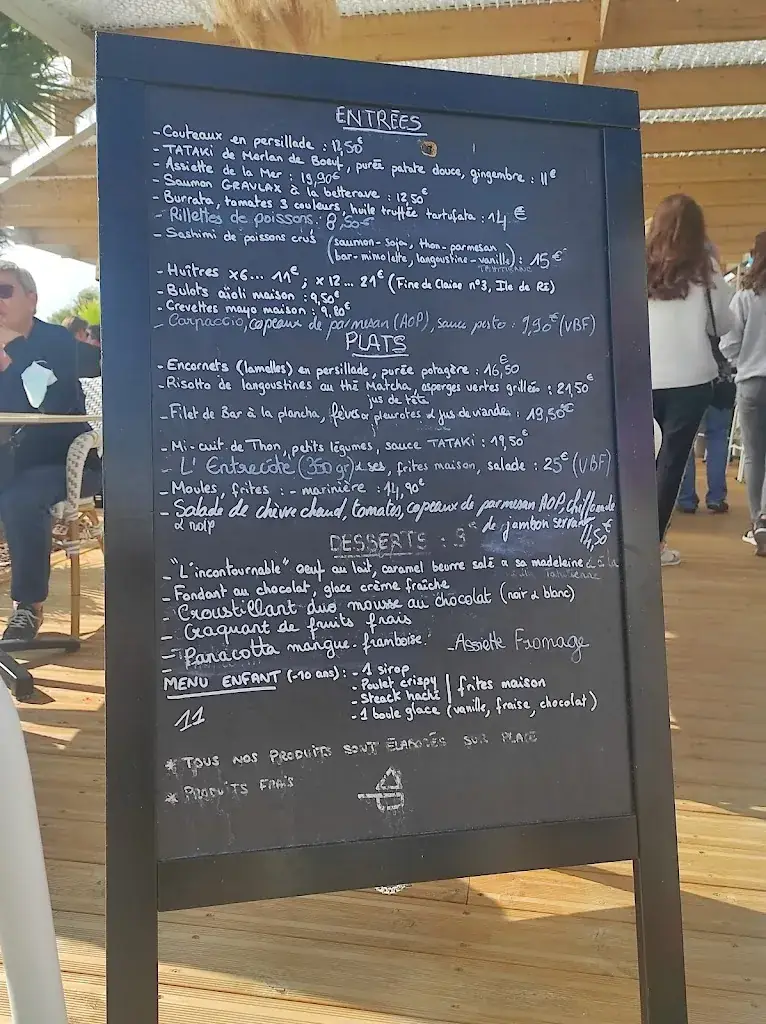 ENTRÉES
- Couteaux en persillade : 12,50€
- TATAKI de Merlan de Boeuf, purée patate douce, gingembre : 11€
- Assiette de la Mer : 19,90€
- Saumon GRAVLAX à la betterave : 12,50€
- Burrata, tomates 3 couleurs, huile truffée tartufata : 14 €
- Rillettes de poissons : 8,50€
- Sashimi de poissons crus (saumon-soja, thon-parmesan
bar-mimolette, langoustine-vanille) : 15€
- Huîtres x6... 11€ ; x12... 21€ (Fine de Claire n°3, Ile de Ré)
- Bulots aïoli maison : 9,50€
- Crevettes mayo maison : 9,80€
- Carpaccio, copeaux de parmesan (AOP), sauce pesto : 9,90€ (VBF)
PLATS
- Encornets (lamelles) en persillade, purée potagère : 16,50€
- Risotto de langoustines au thé Matcha, asperges vertes grillées : 21,50€
jus de tête
- Filet de Bar à la plancha, fèves pleurotes & jus de viandes : 19,50€
- Mi-cuit de Thon, petits légumes, sauce TATAKI : 19,50€
- L'Entrecôte (350 gr) & ses frites maison, salade : 25€ (VBF)
- Moules, frites : - marinière : 14,90€
- Salade de chèvre chaud, tomates, copeaux de parmesan AOP, chiffonade
de jambon serrano 14,50€
DESSERTS : 9€
- "L'incontournable" oeuf au lait, caramel beurre salé & sa madeleine à la
- Fondant au chocolat, glace crème fraîche
- Croustillant duo mousse au chocolat (noir & blanc)
- Craquant de fruits frais
- Panacotta mangue-framboise - Assiette Fromage
MENU ENFANT (-10 ans) : - 1 sirop
- Poulet crispy
- Steack haché frites maison
- 1 boule glace (vanille, fraise, chocolat)
11
* TOUS NOS PRODUITS SONT ÉLABORÉS SUR PLACE
* PRODUITS FRAIS